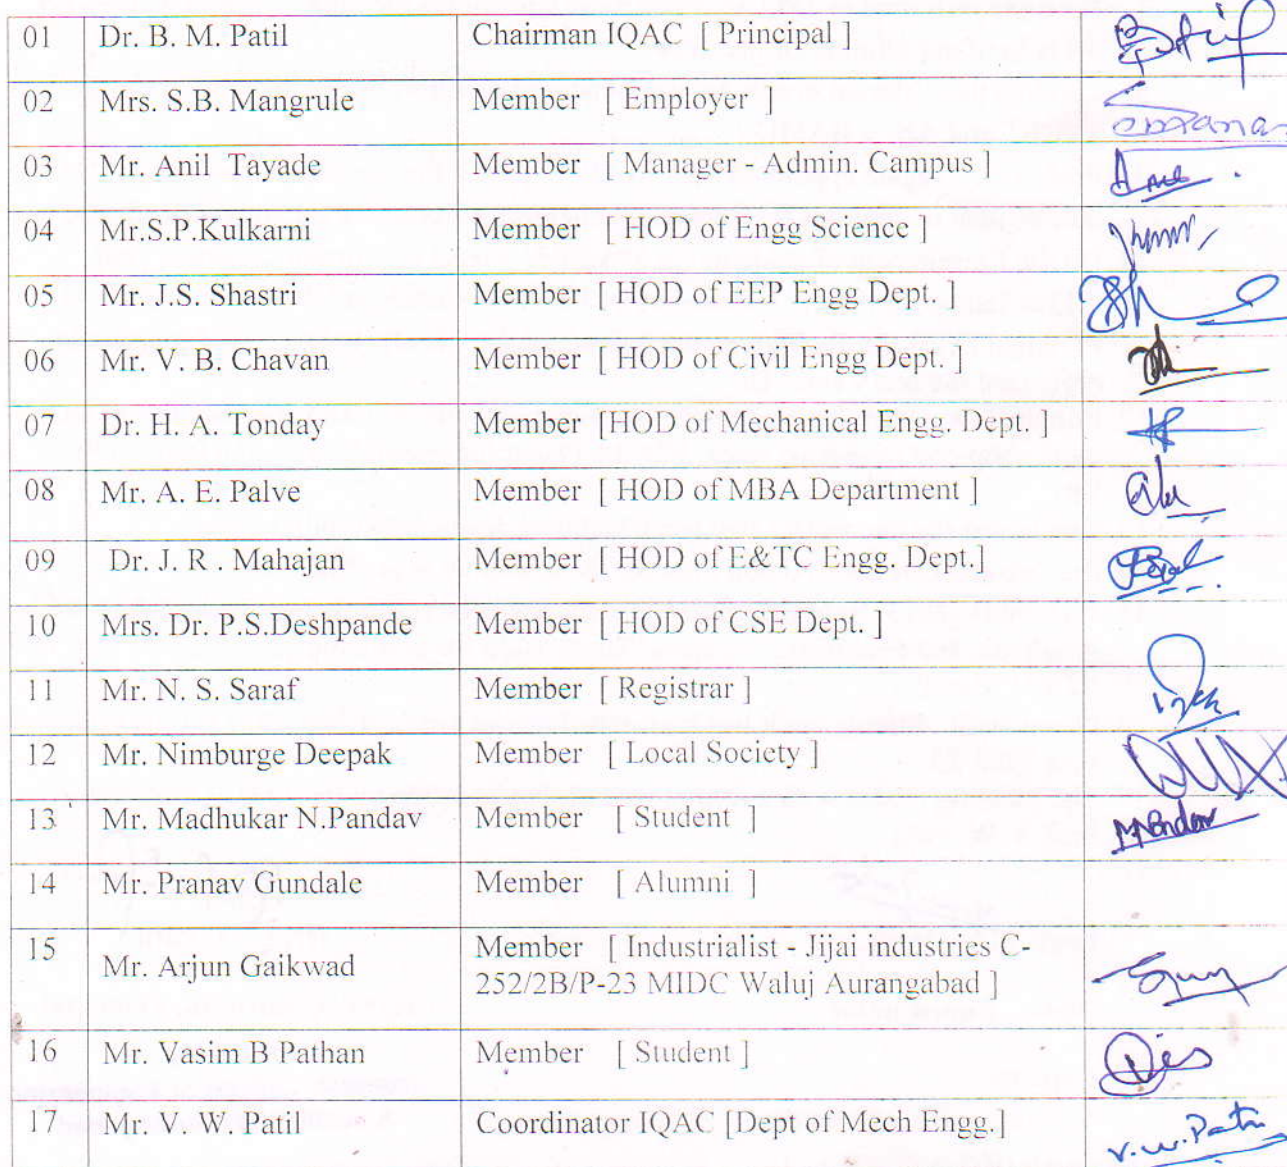 01 Dr. B. M. Patil Chairman IQAC [ Principal ]
02 Mrs. S.B. Mangrule Member [ Employer ]
03 Mr. Anil Tayade Member [ Manager - Admin. Campus ]
04 Mr.S.P.Kulkarni Member [ HOD of Engg Science ]
05 Mr. J.S. Shastri Member [ HOD of EEP Engg Dept. ]
06 Mr. V. B. Chavan Member [ HOD of Civil Engg Dept. ]
07 Dr. H. A. Tonday Member [HOD of Mechanical Engg. Dept. ]
08 Mr. A. E. Palve Member [ HOD of MBA Department ]
09 Dr. J. R . Mahajan Member [ HOD of E&TC Engg. Dept.]
10 Mrs. Dr. P.S.Deshpande Member [ HOD of CSE Dept. ]
11 Mr. N. S. Saraf Member [ Registrar ]
12 Mr. Nimburge Deepak Member [ Local Society ]
13 Mr. Madhukar N.Pandav Member [ Student ]
14 Mr. Pranav Gundale Member [ Alumni ]
15 Mr. Arjun Gaikwad Member [ Industrialist - Jijai industries C-
252/2B/P-23 MIDC Waluj Aurangabad ]
16 Mr. Vasim B Pathan Member [ Student ]
17 Mr. V. W. Patil Coordinator IQAC [Dept of Mech Engg.]